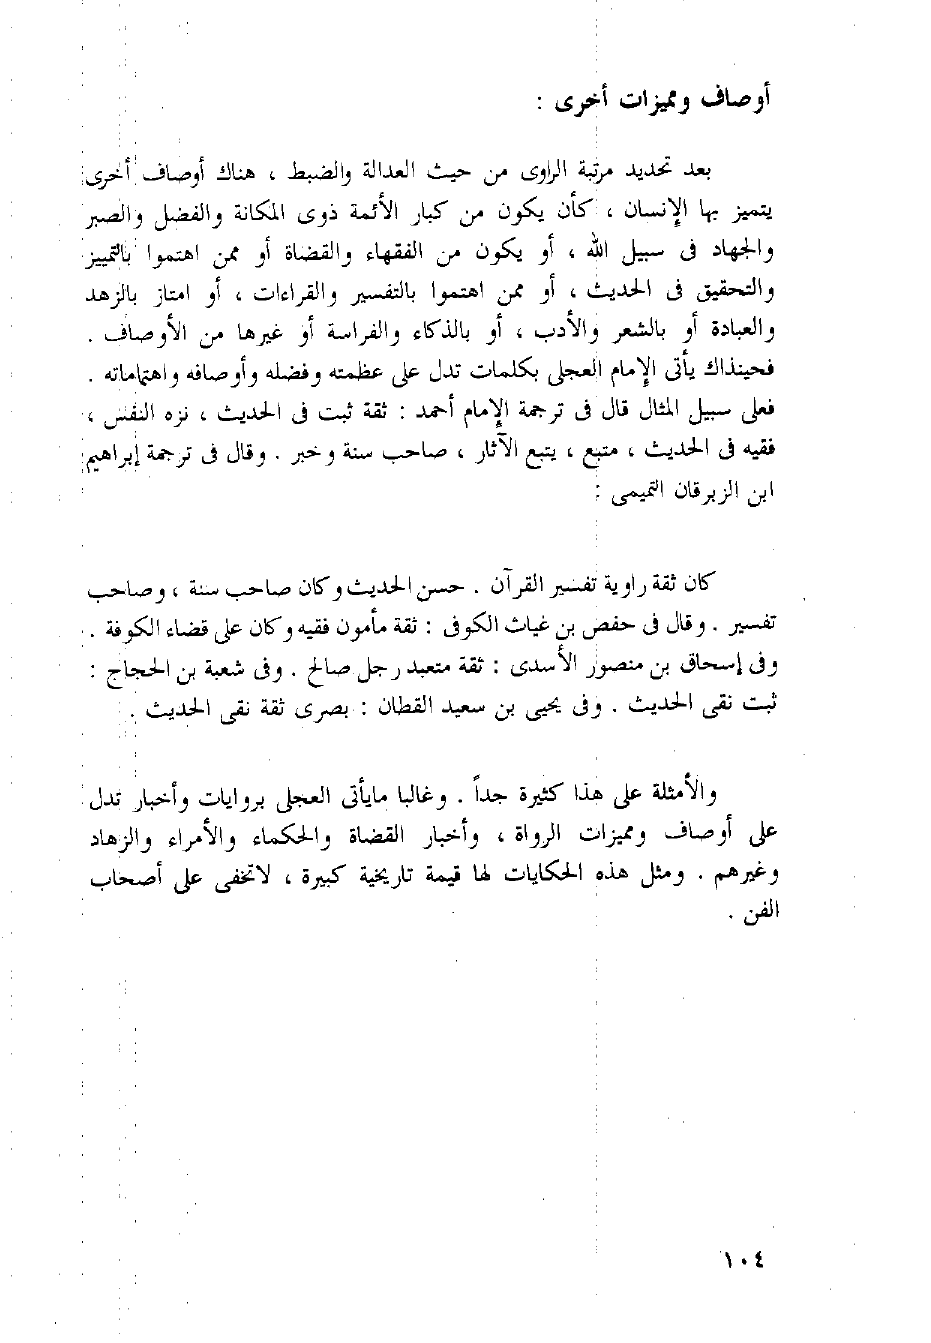 أوصاف ومميزات أخرى :
بعد تحديد مرتبة الراوى من حيث العدالة والضبط ، هناك أوصاف أخرى
يتميز بها الإنسان ، كأن يكون من كبار الأئمة ذوى المكانة والفضل والصبر
والجهاد فى سبيل الله ، أو يكون من الفقهاء والقضاة أو ممن اهتموا بالتمييز
والتحقيق فى الحديث ، أو ممن اهتموا بالتفسير والقراءات ، أو امتاز بالزهد
والعبادة أو بالشعر والأدب ، أو بالذكاء والفراسة أو غيرها من الأوصاف .
فحينذاك يأتى الإمام العجلى بكلمات تدل على عظمته وفضله وأوصافه واهتماماته .
فعلى سبيل المثال قال فى ترجمة الإمام أحمد : ثقة ثبت فى الحديث ، نزه النفس ،
فقيه فى الحديث ، متبع ، يتبع الآثار ، صاحب سنة وخبر . وقال فى ترجمة إبراهيم
ابن الزبرقان التميمى :
كان ثقة راوية تفسير القرآن . حسن الحديث وكان صاحب سنة ، وصاحب
تفسير . وقال فى حفص بن غياث الكوفى : ثقة مأمون فقيه وكان على قضاء الكوفة .
وفى إسحاق بن منصور الأسدى : ثقة متعبد رجل صالح . وفى شعبة بن الحجاج :
ثبت نقى الحديث . وفى يحيى بن سعيد القطان : بصرى ثقة نقى الحديث .
والأمثلة على هذا كثيرة جداً . وغالبا مايأتى العجلى بروايات وأخبار تدل
على أوصاف ومميزات الرواة ، وأخبار القضاة والحكماء والأمراء والزهاد
وغيرهم . ومثل هذه الحكايات لها قيمة تاريخية كبيرة ، لاتخفى على أصحاب
الفن .
١٠٤